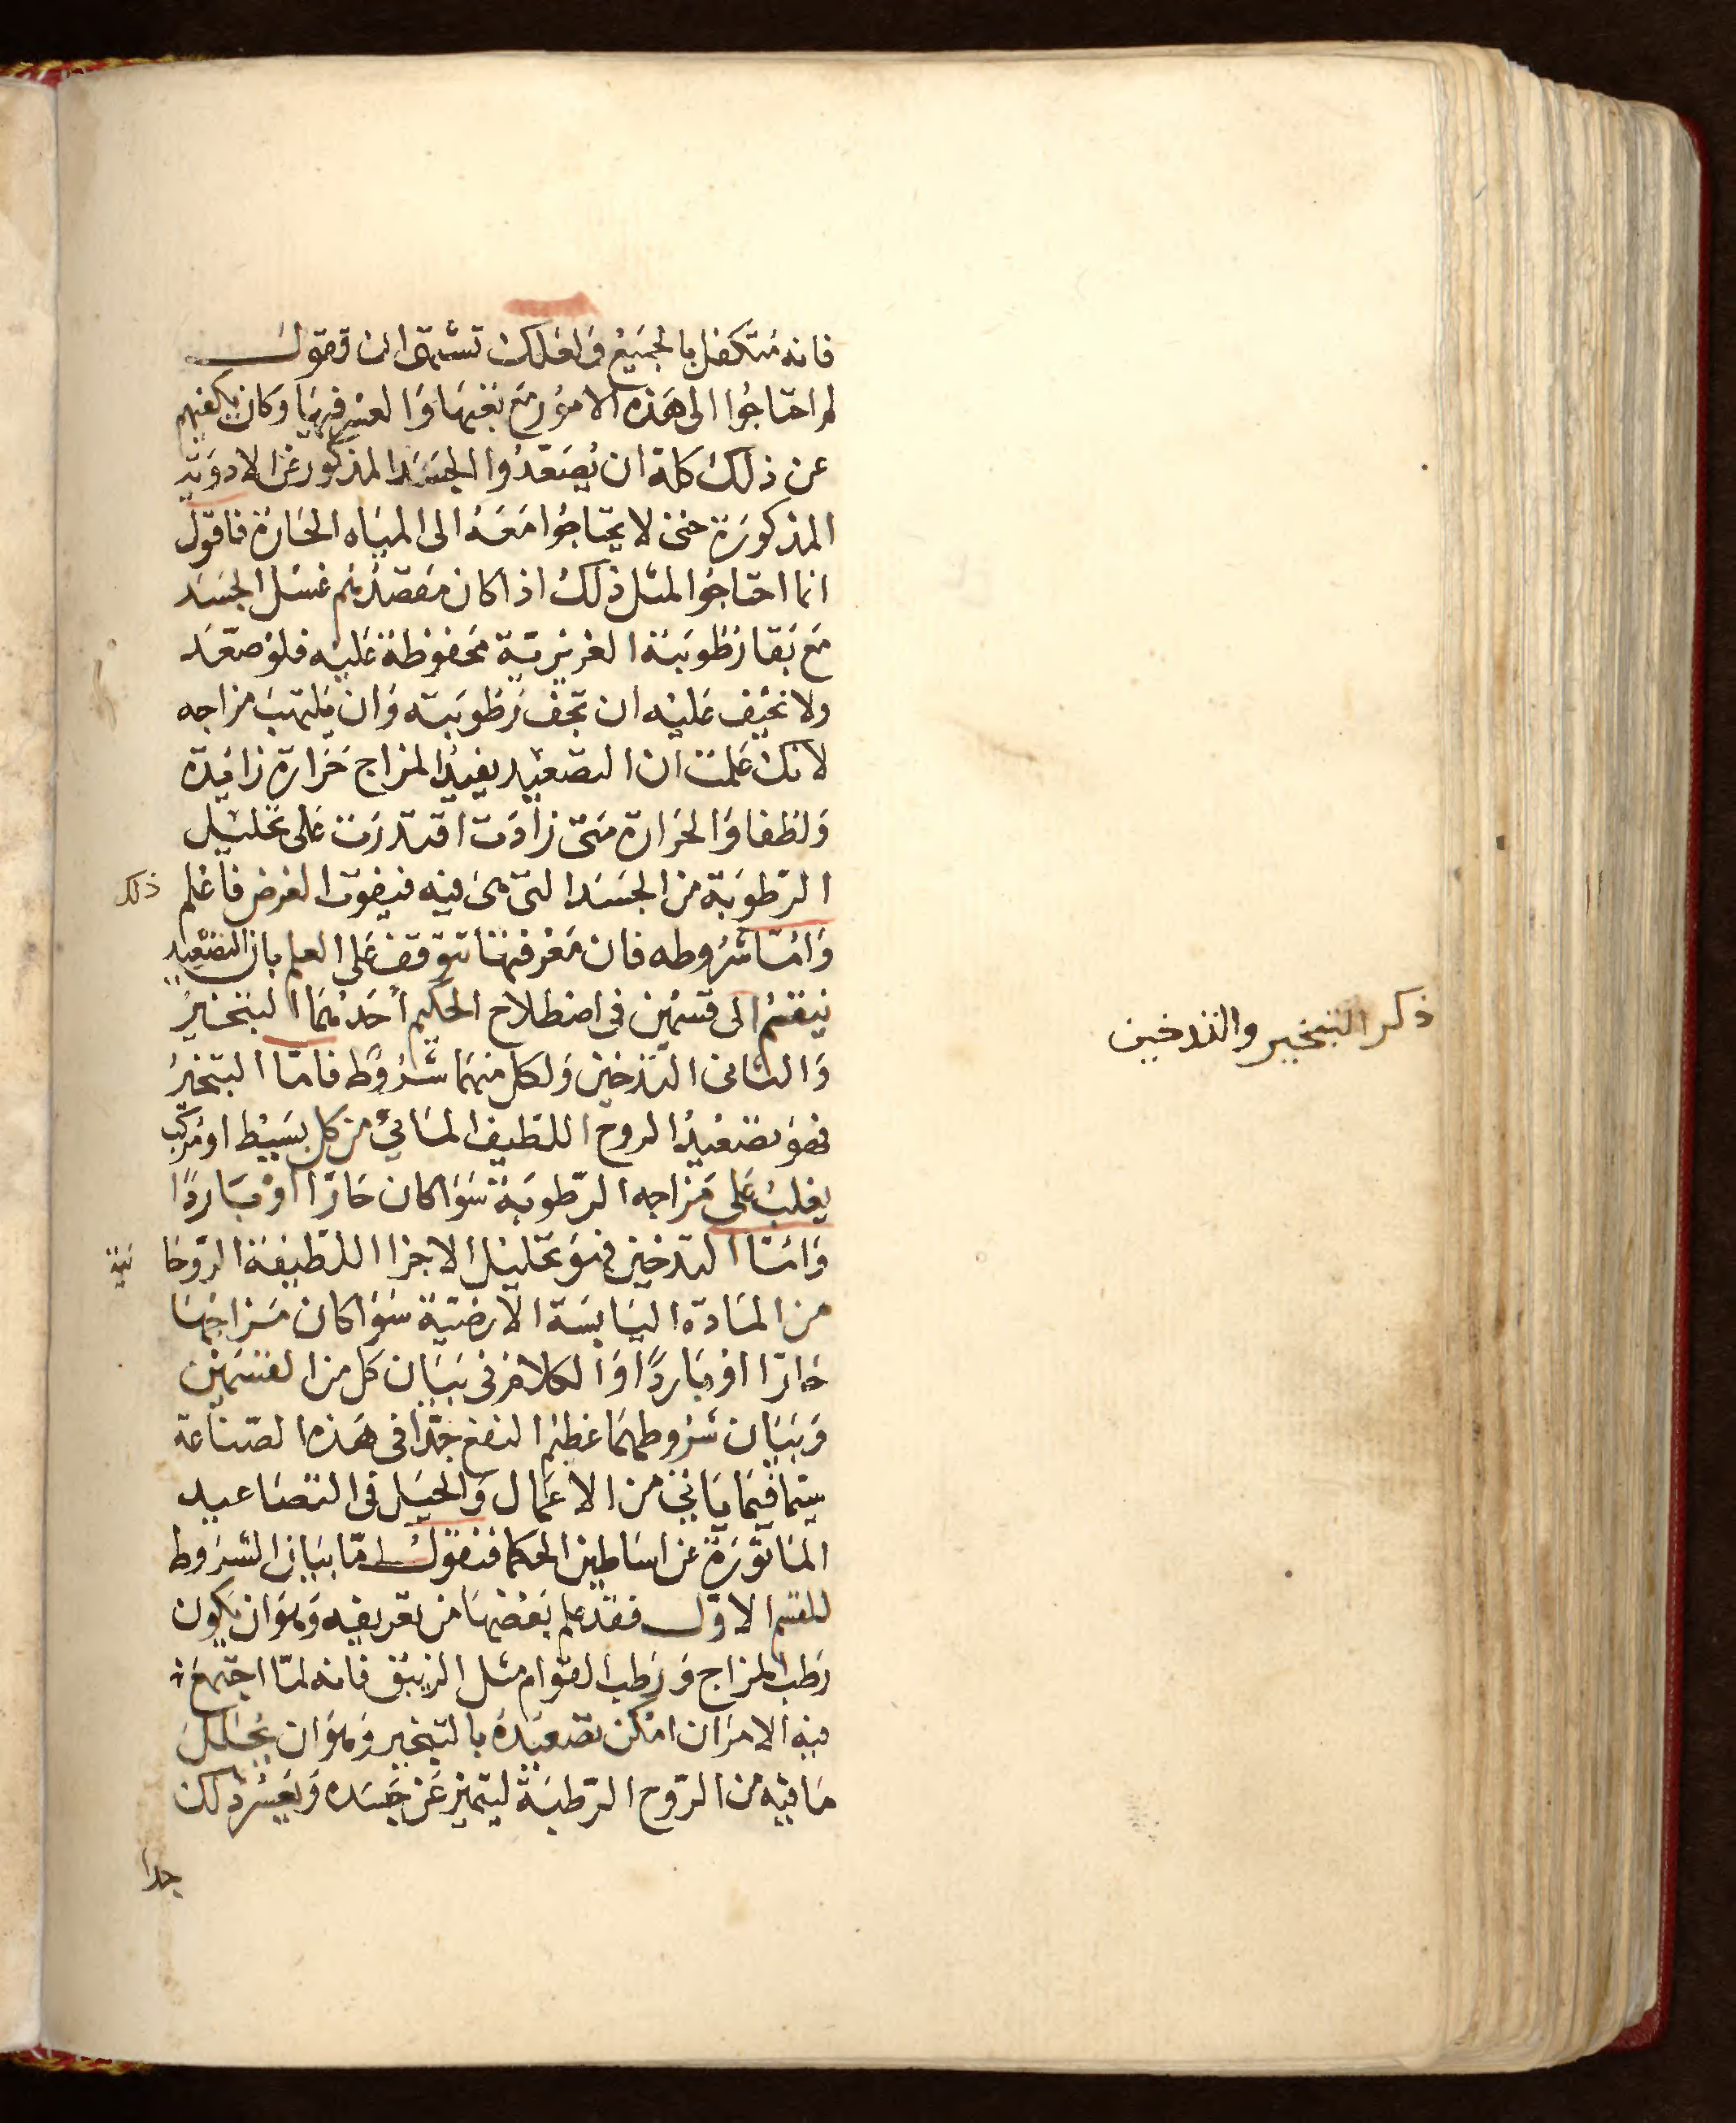 فانه متكفل بالجميع فلعلك تشتهي ان تقول
لم احتاجوا الى هذه الامور مع تعبها والعسر فيها وكان يكفيهم
عن ذلك كله ان يصعدوا الجسد المذكور عن الادوية
المذكورة حتى لا يحتاجوا معه الى المياه الحارة فاقول
انما احتاجوا لمثل ذلك اذا كان مقصدهم غسل الجسد
مع بقا رطوبته الغريزية محفوظة عليه فلو صعد
ولا نخيف عليه ان تجف رطوبته وان يلتهب مزاجه
لانك علمت ان التصعيد يفيد المزاج حرارة زايدة
ولطفا والحرارة متى زادت اقتدرت على تحليل
الرطوبة من الجسد التي هي فيه فيفوت الغرض فاعلم ذلك
واما شروطه فان معرفتها تتوقف على العلم بان التصعيد
ينقسم الى قسمين في اصطلاح الحكيم احدهما التبخير
والثاني التدخين ولكل منهما شروط فاما التبخير
فهو تصعيد الروح اللطيف المائي من كل بسيط او مركب
يغلب على مزاجه الرطوبة سوا كان حارا او باردا
واما التدخين فهو تحليل الاجزا اللطيفة الروحا نية
من المادة اليابسة الارضية سوا كان مزاجها
حارا او باردا والكلام في بيان كل من القسمين
وبيان شروطهما عظيم النفع جدا في هذه الصناعة
سيما فيما ياتي من الاعمال والحيل في التصاعيد
الماثورة عن اساطين الحكما فنقول اما بيان الشروط
للقسم الاول فقد علم بعضها من تعريفه وهو ان يكون
رطب المزاج ورطب القوام مثل الزيبق فانه لما اجتمع
فيه الامران امكن تصعيده بالتبخير وهو ان يحلل
ما فيه من الروح الرطبة ليتميز عن جسده ويعسر ذلك
جدا
ذكر التبخير والتدخين